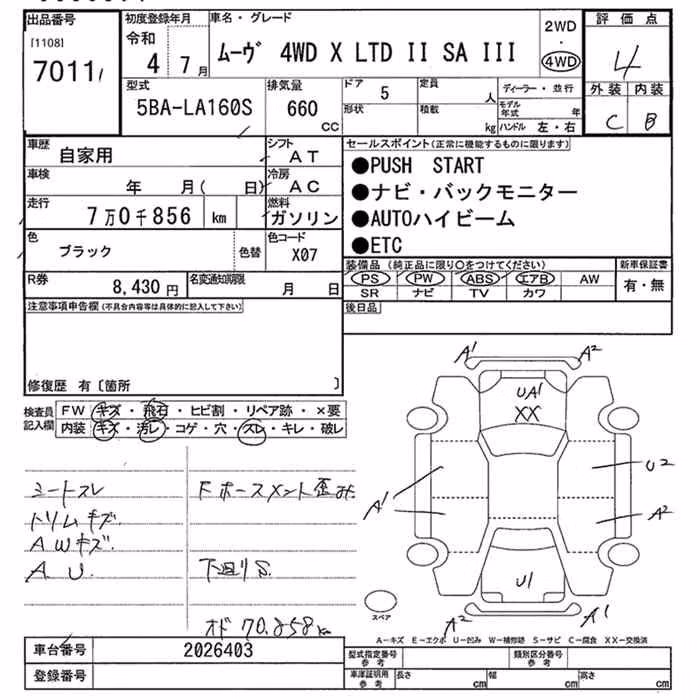 出品番号
[1108]
7011
初度登録年月
令和
4 7月
車名・グレード
ムーヴ 4WD X LTD II SA III
2WD
・
4WD
評価点
4
外装 内装
C B
型式
5BA-LA160S
排気量
660
cc
ドア 5
形状
定員 人
積載 kg
ディーラー・並行
モデル年式 年
ハンドル 左・右
車歴
自家用
シフト
AT
車検
年 月( 日)
冷房
AC
走行
7万0千856 km
燃料
ガソリン
色
ブラック
色替
色コード
X07
R券
8,430 円
名変通知期限
月 日
セールスポイント(正常に機能するものに限ります)
●PUSH START
●ナビ・バックモニター
●AUTOハイビーム
●ETC
装備品 (純正品に限り○をつけてください)
PS PW ABS エアB AW
SR ナビ TV カワ
新車保証書
有・無
後日品
注意事項申告欄(不具合内容等は具体的に記入して下さい)
修復歴 有〔箇所 〕
検査員
記入欄
FW キズ・飛石・ヒビ割・リペア跡・×要
内装 キズ・汚レ・コゲ・穴・スレ・キレ・破レ
シートスレ
トリムキズ
AWキズ
A U
Fホースメント歪み
下廻りS
オド 70,858km
A1 A2
UA1
XX
A1
U2
A2
U1
A2 A1
スペア
A-キズ E-エクボ U-凹み W-補修跡 S-サビ C-腐食 XX-交換済
車台番号 2026403
登録番号
型式指定番号
参考
類別区分番号
参考
車庫証明用
参考
長さ cm
幅 cm
高さ cm